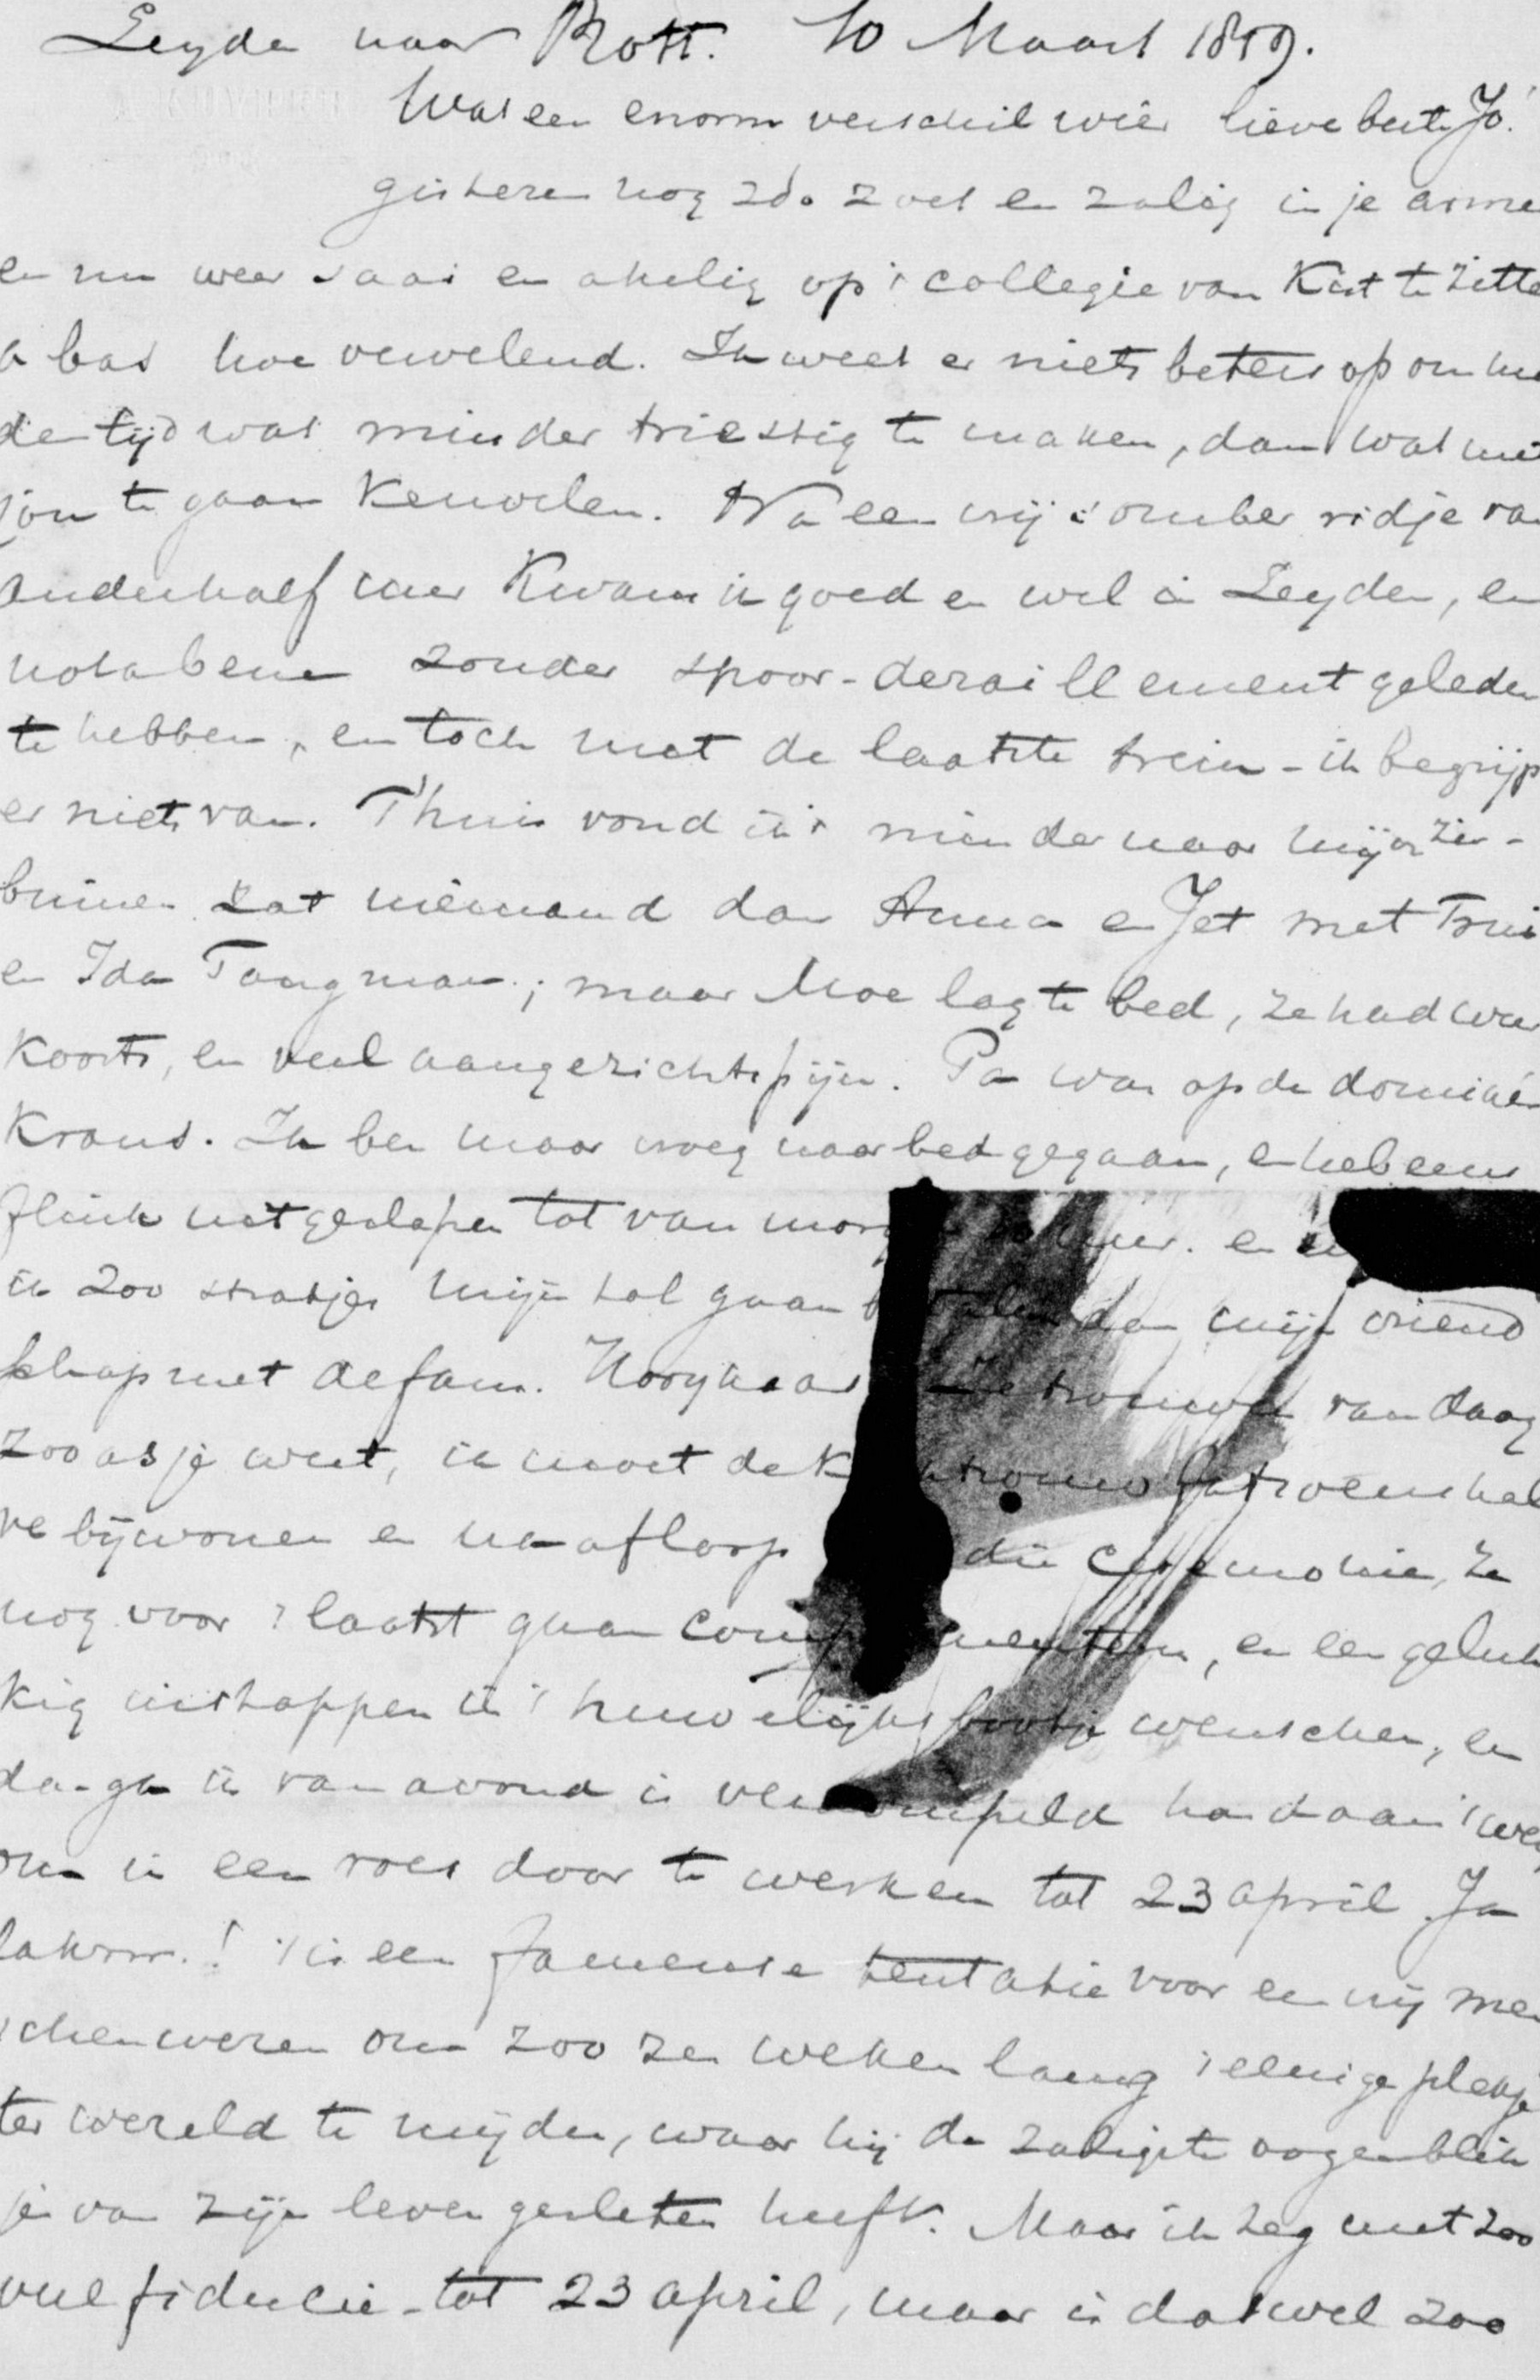 Leyde naar Rott. 10 Maart 1859.
Wat een enorm verschil wéér lieve beste Jo!
gisteren nog zóo zoet en zalig in je arme
en nu weer saai en akelig op 't collegie van te zitte
bas hoe vervelend. Ik weet er niets beters op om me
den tijd wat minder triestig te maken, dan wat met
jou te gaan keuvelen. Na een vrij somber ridje van
anderhalf uur kwam ik goed en wel in Leyden, en
notabene zonder spoor-deraillement geleden
te hebben, en toch met de laatste trein - ik begrijp
er niets van. T'huis vond ik 't minder naar mijn zin -
binnen zat niemand dan Anna en Jet met Trui
en Ida Tangman; maar Moe lag te bed, ze had weer
Koorts, en veel aangezichtspijn. Pa was op de dominé's
Krans. Ik ben maar vroeg naar bed gegaan, en heb eens
flink uitgeslapen tot van morgen uur. en
ik zoo straks mijn tol gaan betalen dan mijn vriend
schap met de fam. Hooykaas Ze trouwen van daag
zooals je weet, ik moet de
ve bijwonen en na afloop die ceremonie, ze
nog voor 't laatst gaan complimenteren, en een geluk
kig instappen in 't huwelijksbootje wenschen, en
dan ga ik van avond is hand aan 't werk
om in een roes door te werken tot 23 april. Ja
't is een fameuse tentatie voor een vrij men
schenwezen om zoo zes weken lang 't eenige plekje
ter wereld te mijden, waar hij de zaligste oogenblik
je van zijn leven gesleten heeft. Maar ik zeg met zoo
veel fiducie - tot 23 april, maar is dat wel zoo